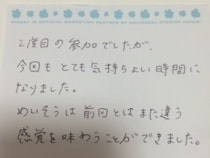 2度目の参加でしたが、
今回も とても気持ちよい時間に
なりました。
めいそうは 前回とはまた違う
感覚を味わうことができました。